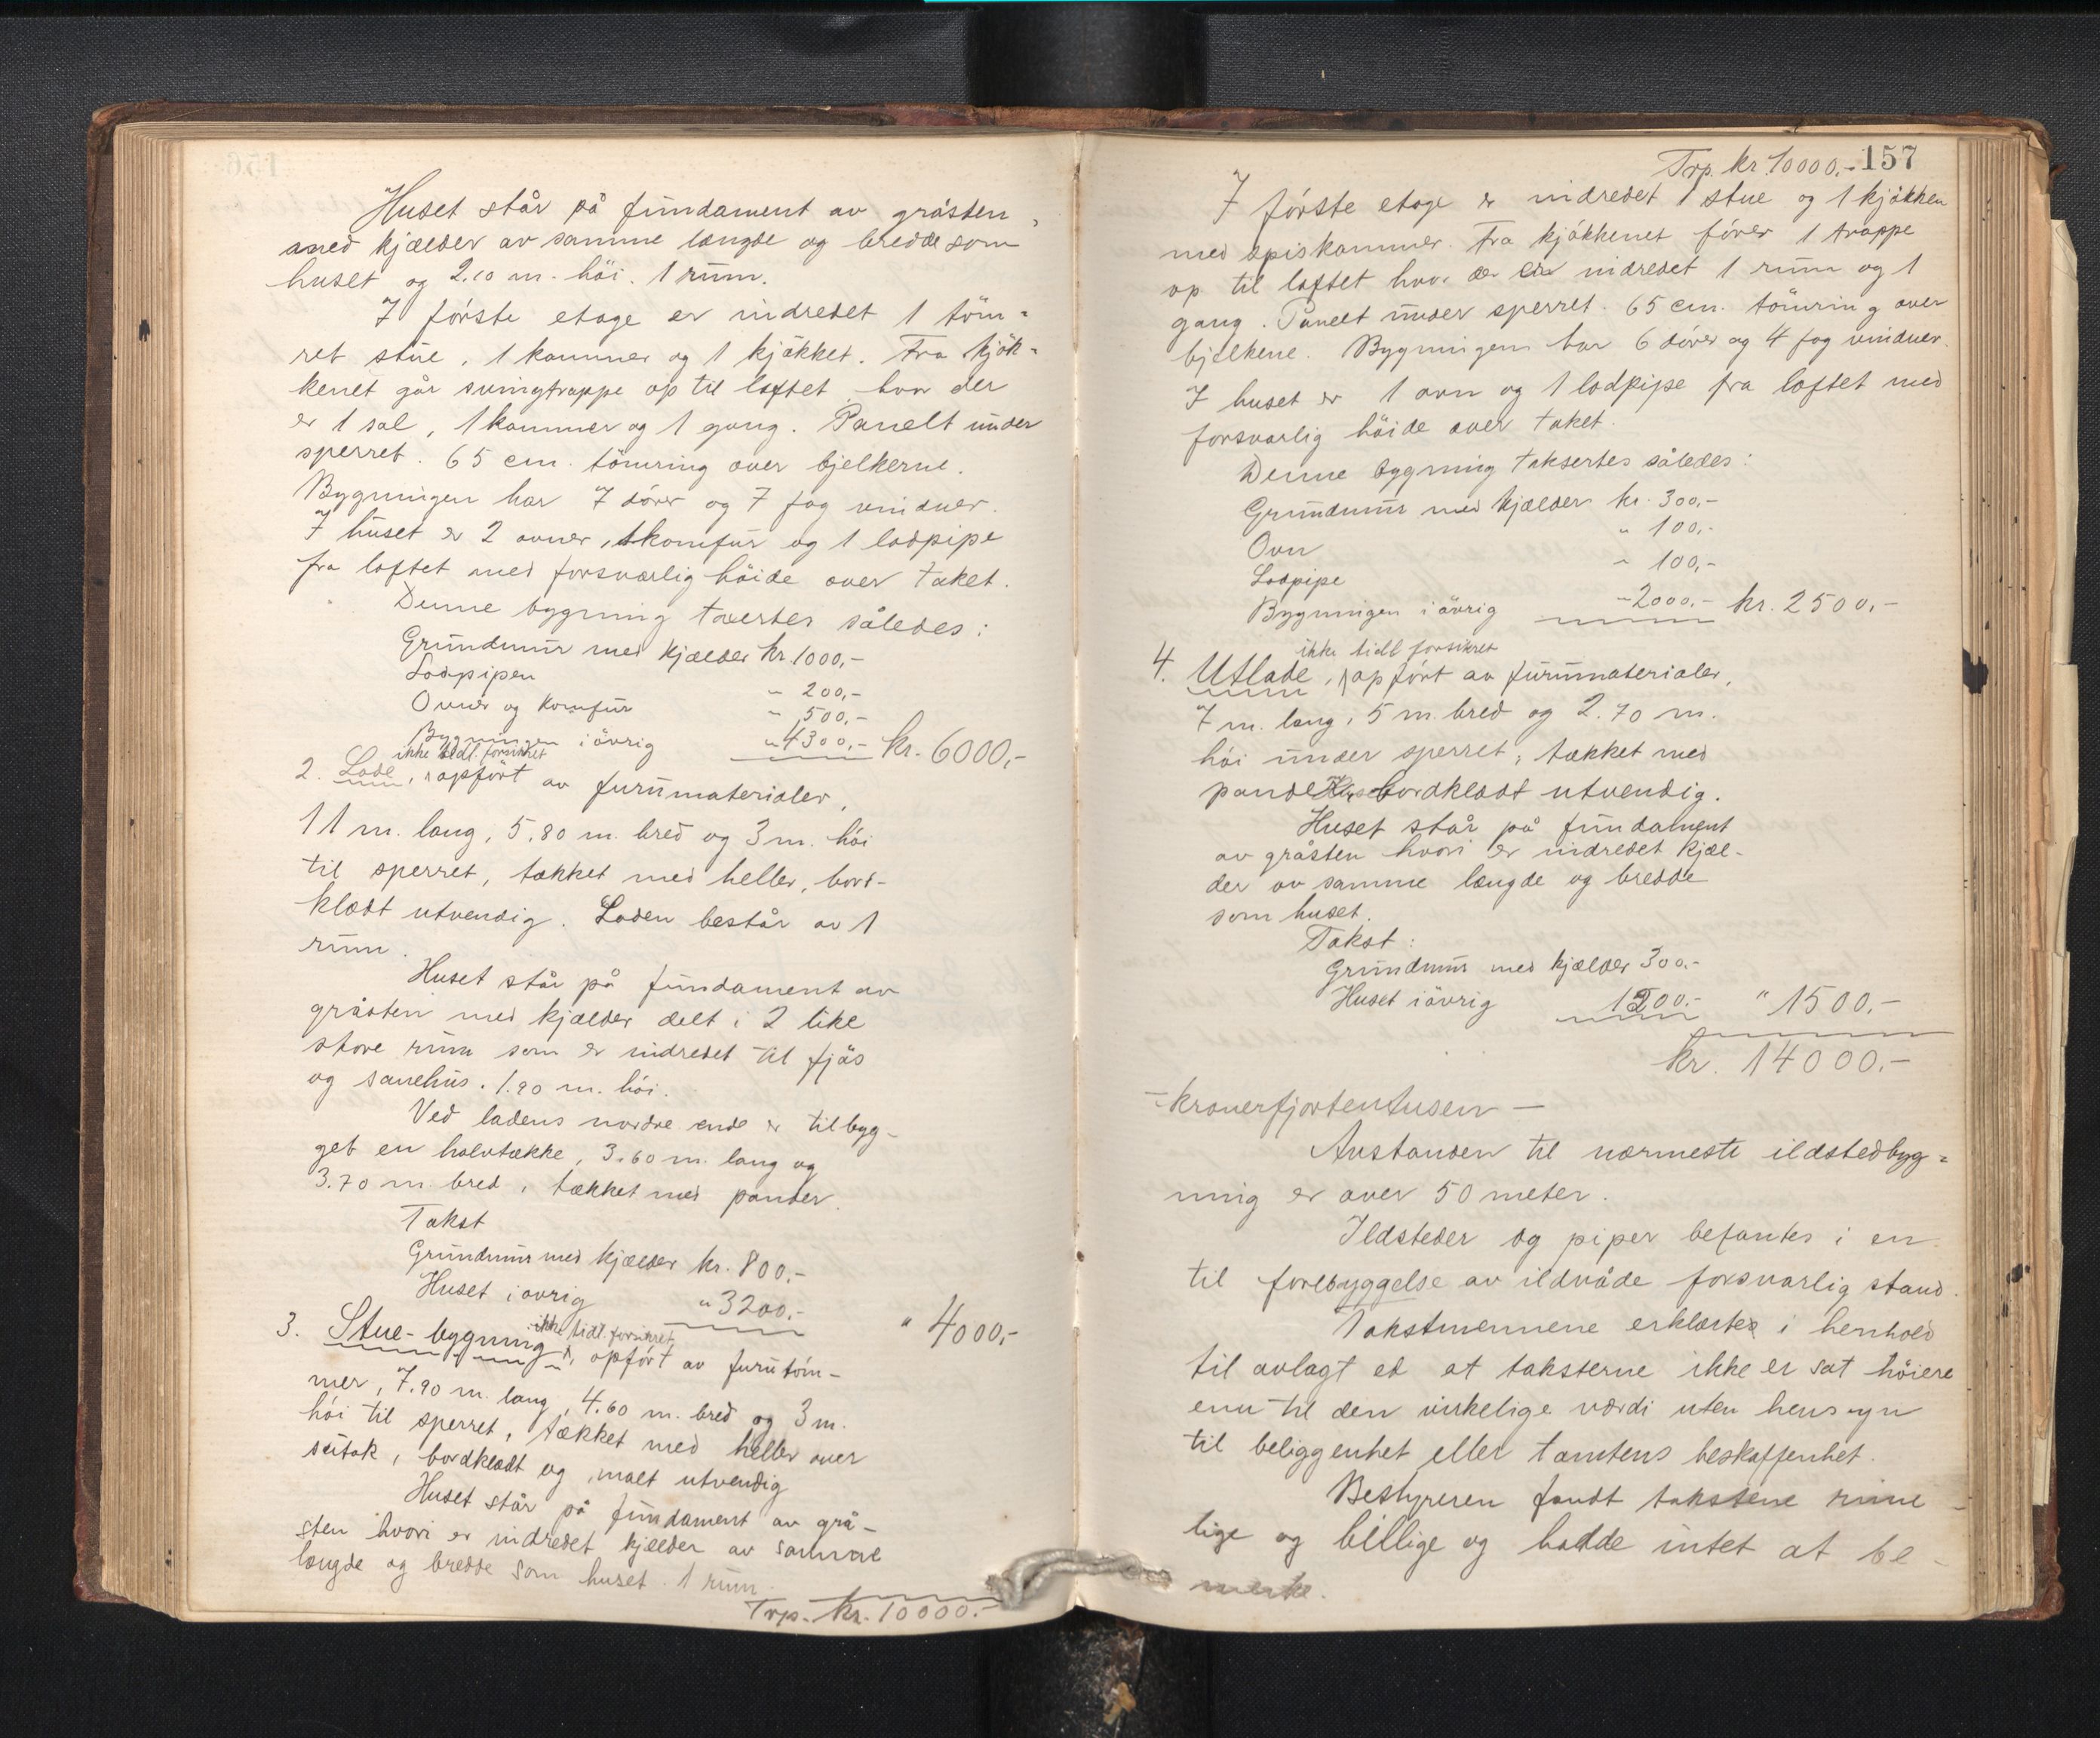 Huset står på fundament av gråsten,
med kjælder av samme længde og bredde som
huset og 2.10 m. höi. 1 rum.
I förste etage er indredet 1 töm-
ret stue, 1 kammer og 1 kjökken. Fra kjök-
kenet går svingtrappe op til loftet, hvor der
er 1 sal, 1 kammer og 1 gang. Panelt under
sperret. 65 cm. tömring over bjelkerne.
Bygningen har 7 dörer og 7 fag vinduer.
I huset er 2 ovner, 1 komfur og 1 lodpipe
fra loftet med forsvarlig höide over taket.
Denne bygning taxertes således:
Grundmur med kjælder kr. 1000,-
Lodpipen " 200,-
Ovner og komfur " 500,-
Bygningen iövrig " 4300,- kr. 6000,-
ikke tidl. forsikret
2. Lade, opfört av furumaterialer,
11 m. lang, 5.80 m. bred og 3 m. höi
til sperret, tækket med heller, bord-
klædt utvendig. Laden består av 1
rum.
Huset står på fundament av
gråsten med kjælder delt i 2 like
store rum som er indredet til fjös
og sauehus. 1.90 m. höi.
Ved ladens nordre ende er tilbyg-
get en halvtække, 3.60 m. lang og
3.70 m. bred, tækket med pander.
Takst
Grundmur med kjælder kr. 800,-
Huset iövrig " 3200,- " 4000,-
ikke tidl. forsikret
3. Stue-bygning, opfört av furutöm-
mer, 7.90 m. lang, 4.60 m. bred og 3 m.
höi til sperret, tækket med heller over
sutak, bordklædt og malt utvendig
Huset står på fundament av grå-
sten hvori er indredet kjælder av samme
længde og bredde som huset. 1 rum.
Trp. kr. 10000,-
157
Trp. kr. 10000,-
I förste etage er indredet 1 stue og 1 kjökken
med spiskammer. Fra kjökkenet förer 1 trappe
op til loftet hvor der er indredet 1 rum og 1
gang. Panelt under sperret. 65 cm. tömring over
bjelkene. Bygningen har 6 dörer og 4 fag vinduer.
I huset er 1 ovn og 1 lodpipe fra loftet med
forsvarlig höide over taket.
Denne bygning taksertes således:
Grundmur med kjælder kr. 300,-
Ovn " 100,-
Lodpipe " 100,-
Bygningen iövrig " 2000,- kr. 2500,-
ikke tidl forsikret
4. Utlade, opfört av furumaterialer,
7 m. lang, 5 m. bred og 2.70 m.
höi under sperret, tækket med
pander, bordklædt utvendig.
Huset står på fundament
av gråsten hvori er indredet kjæl-
der av samme længde og bredde
som huset.
Takst:
Grundmur med kjælder 300,-
Huset iövrig 1200,- " 1500,-
kr. 14000,-
- kronerfjortentusen -
Avstanden til nærmeste ildstedbyg-
ning er over 50 meter.
Ildsteder og piper befantes i en
til forebyggelse av ildvåde forsvarlig stand.
Takstmennene erklærtes i henhold
til avlagt ed at taksterne ikke er sat höiere
enn til den virkelige værdi uten hensyn
til beliggenhet eller tomtens beskaffenhet.
Bestyreren fandt takstene rime-
lige og billige og hadde intet at be-
merke.